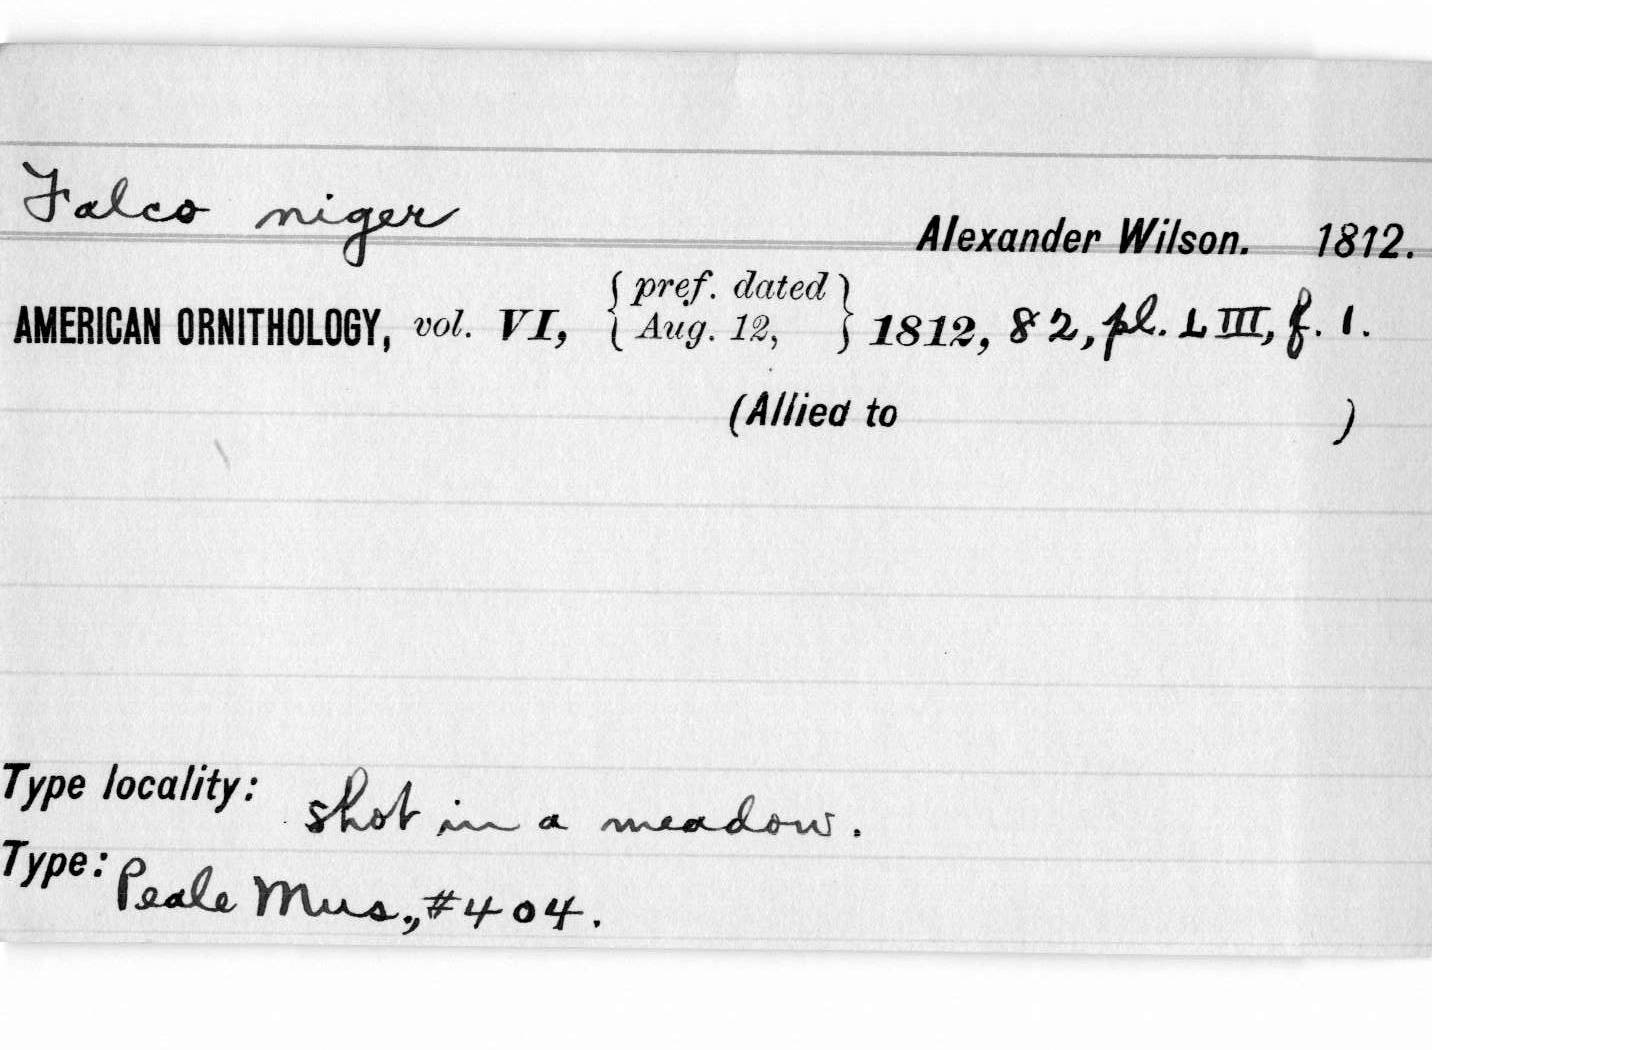 Falco niger
Alexander Wilson. 1812.
AMERICAN ORNITHOLOGY, vol. VI, { pref. dated Aug. 12, } 1812, 82, pl. LIII, f. 1.
(Allied to )
Type locality: shot in a meadow.
Type: Peale Mus., #404.